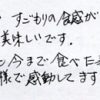 すごもりの食感が
美味しいです。
今まで食べた
様で感動してます